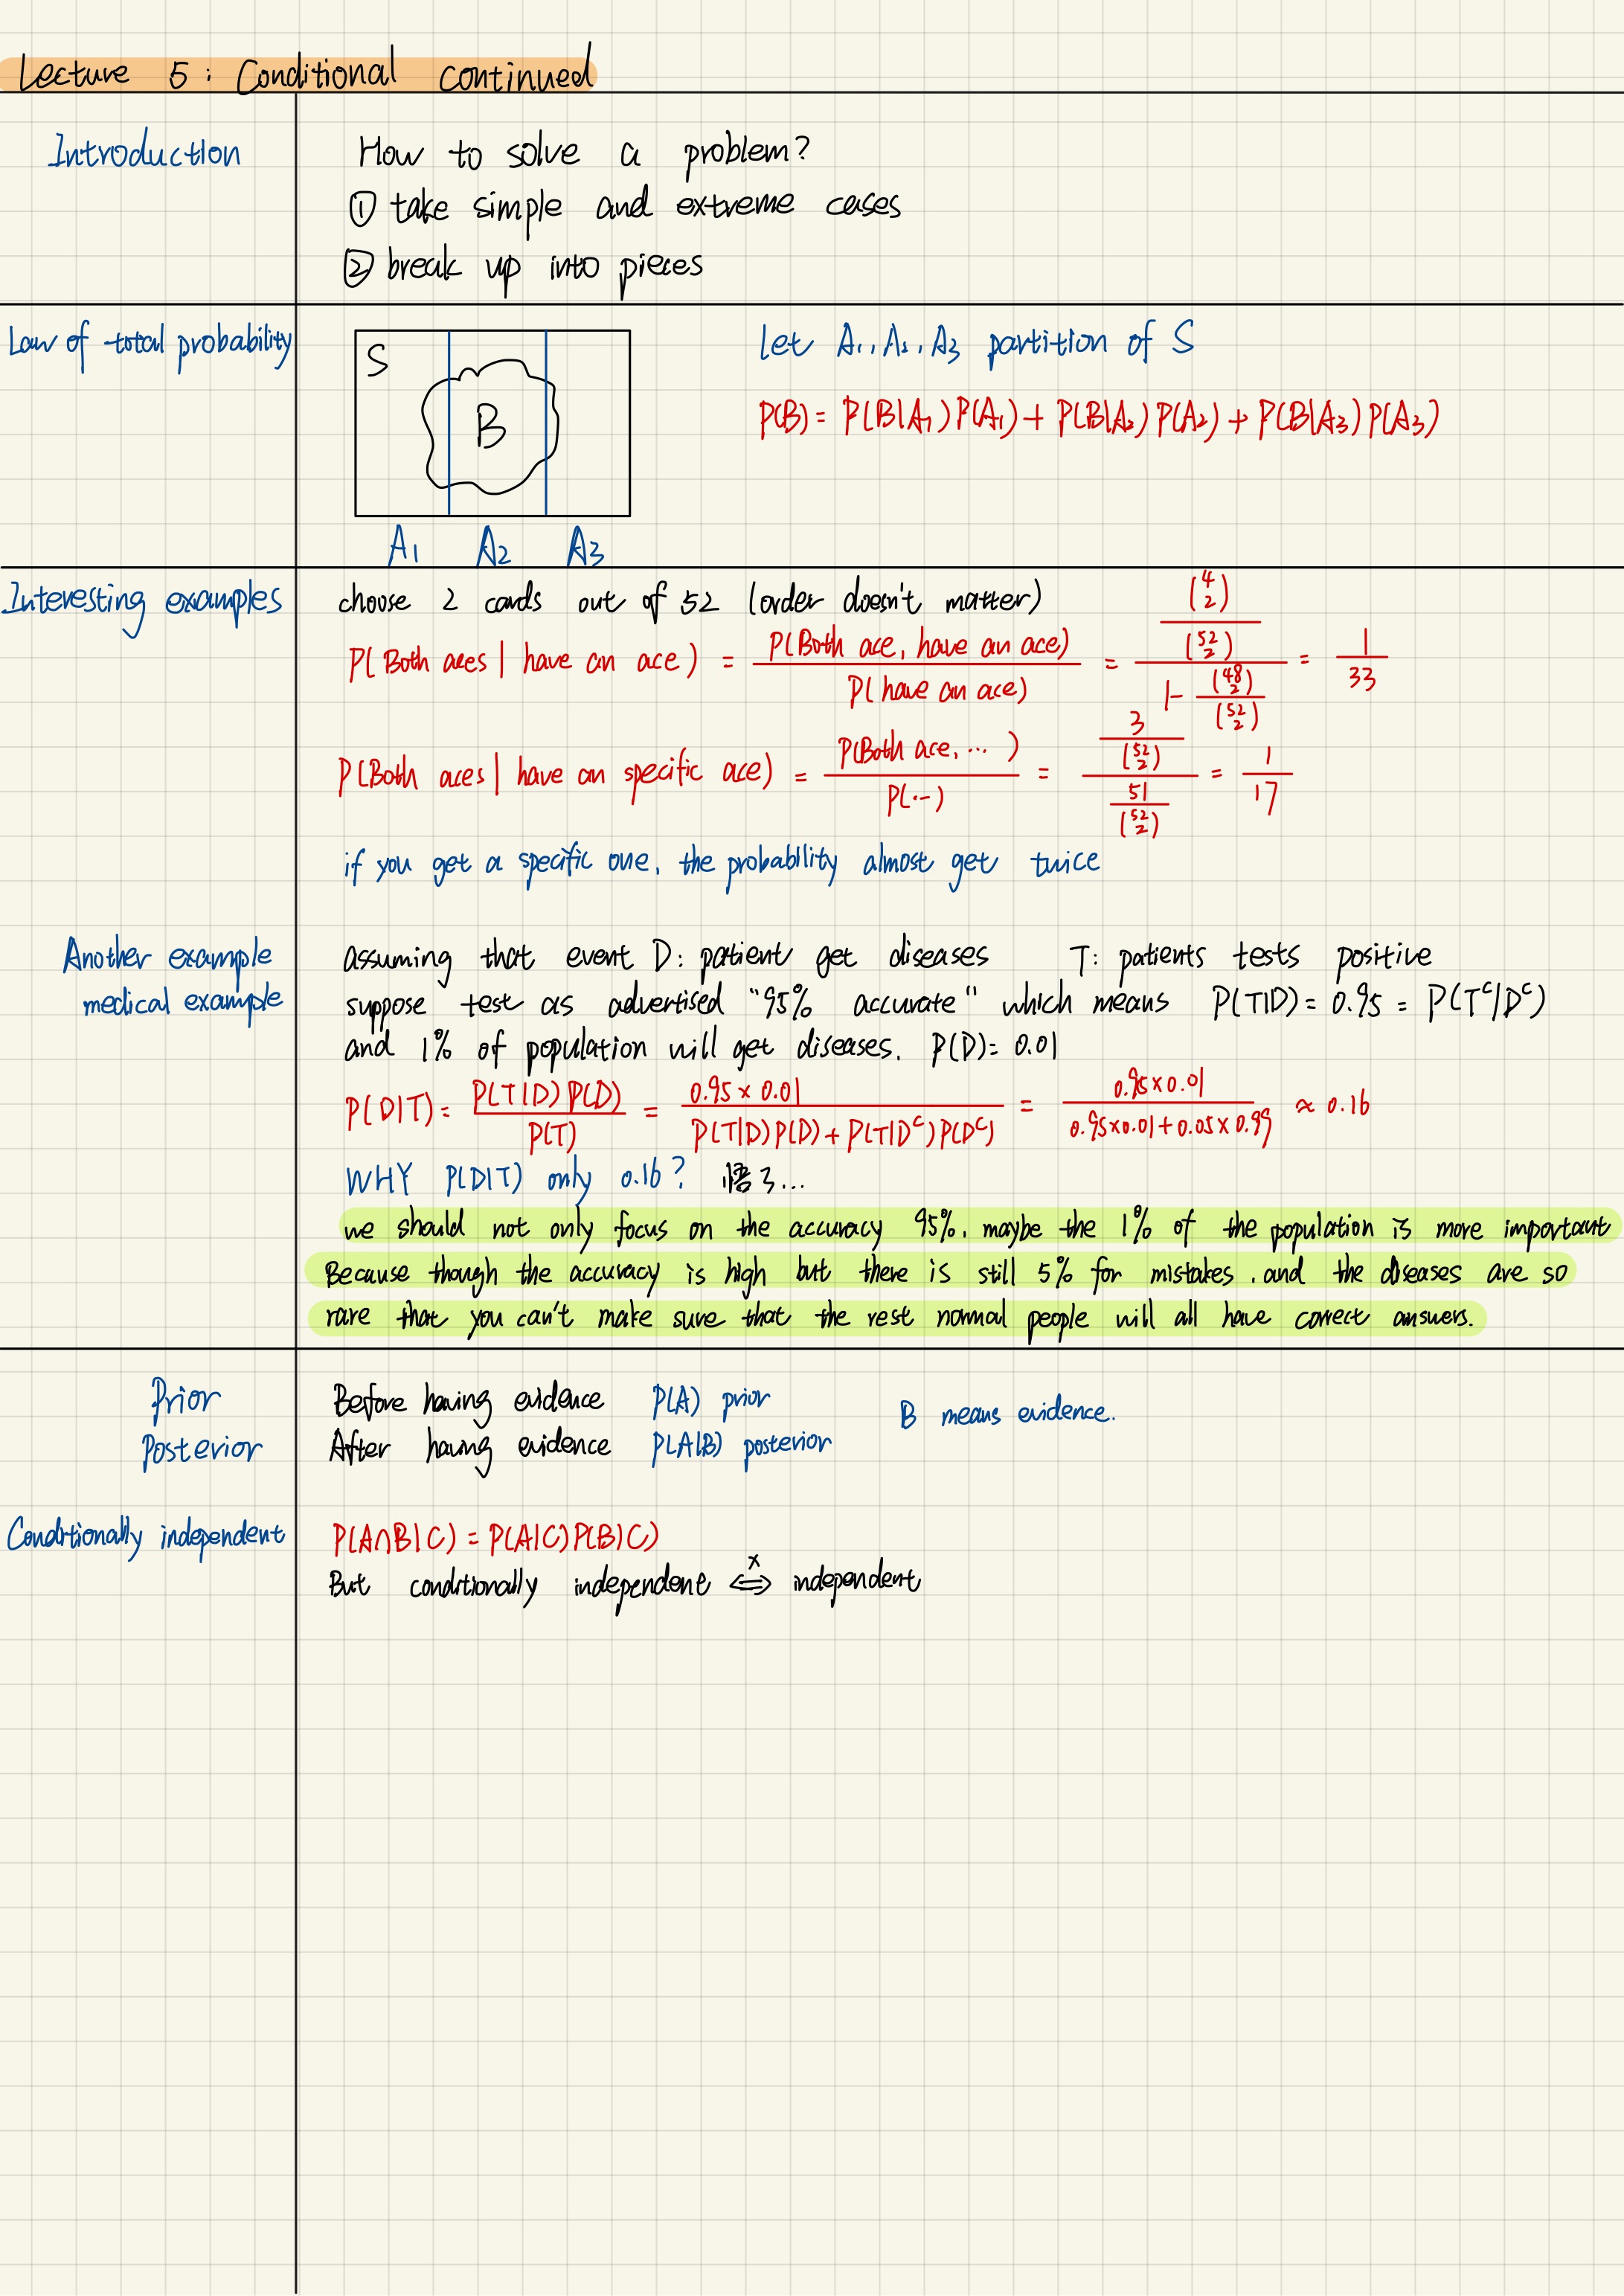 Lecture 5 : Conditional continued
Introduction
How to solve a problem?
① take simple and extreme cases
② break up into pieces
Law of total probability
S
B
A₁ A₂ A₃
let A₁, A₂, A₃ partition of S
P(B) = P(B|A₁)P(A₁) + P(B|A₂)P(A₂) + P(B|A₃)P(A₃)
Interesting examples
choose 2 cards out of 52 (order doesn't matter)
P(Both aces | have an ace) = P(Both ace, have an ace) / P(have an ace) = (4 2)/(52 2) / 1-(48 2)/(52 2) = 1/33
P(Both aces | have an specific ace) = P(Both ace, ...) / P(...) = 3/(52 2) / 51/(52 2) = 1/17
if you get a specific one, the probability almost get twice
Another example
medical example
assuming that event D: patient get diseases T: patients tests positive
suppose test as advertised "95% accurate" which means P(T|D) = 0.95 = P(Tᶜ|Dᶜ)
and 1% of population will get diseases. P(D) = 0.01
P(D|T) = P(T|D)P(D) / P(T) = 0.95 × 0.01 / P(T|D)P(D) + P(T|Dᶜ)P(Dᶜ) = 0.95×0.01 / 0.95×0.01+0.05×0.99 ≈ 0.16
WHY P(D|T) only 0.16? 悟了...
we should not only focus on the accuracy 95%, maybe the 1% of the population is more important
Because though the accuracy is high but there is still 5% for mistakes, and the diseases are so
rare that you can't make sure that the rest normal people will all have correct answers.
Prior
Before having evidence P(A) prior
B means evidence.
Posterior
After having evidence P(A|B) posterior
Conditionally independent
P(A∩B|C) = P(A|C)P(B|C)
But conditionally independent ⇔ x independent